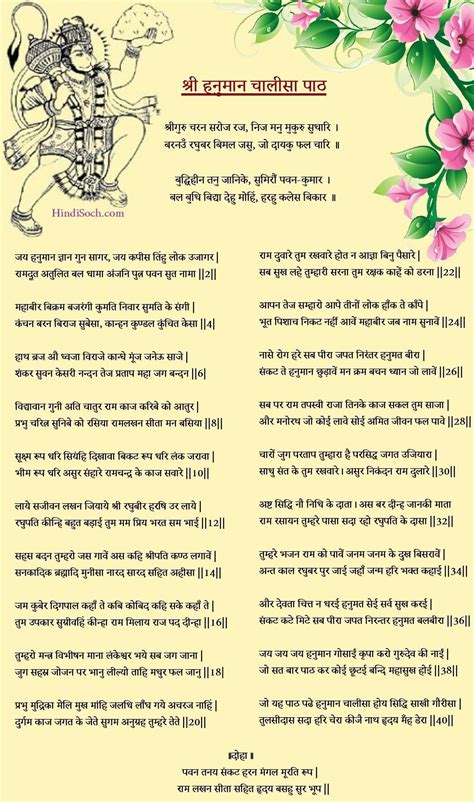 श्री हनुमान चालीसा पाठ
श्रीगुरु चरन सरोज रज, निज मनु मुकुरु सुधारि ।
बरनउँ रघुबर बिमल जसु, जो दायकु फल चारि ॥
बुद्धिहीन तनु जानिके, सुमिरौं पवन-कुमार ।
बल बुधि बिद्या देहु मोहिं, हरहु कलेस बिकार ॥
HindiSoch.com
जय हनुमान ज्ञान गुन सागर, जय कपीस तिंहु लोक उजागर |
रामदूत अतुलित बल धामा अंजनि पुत्र पवन सुत नामा ||2||
महाबीर बिक्रम बजरंगी कुमति निवार सुमति के संगी |
कंचन बरन बिराज सुबेसा, कान्हन कुण्डल कुंचित केसा ||4|
हाथ ब्रज औ ध्वजा विराजे कान्धे मूंज जनेऊ साजे |
शंकर सुवन केसरी नन्दन तेज प्रताप महा जग बन्दन ||6|
विद्यावान गुनी अति चातुर राम काज करिबे को आतुर |
प्रभु चरित्र सुनिबे को रसिया रामलखन सीता मन बसिया ||8|
सूक्ष्म रूप धरि सियंहि दिखावा बिकट रूप धरि लंक जरावा |
भीम रूप धरि असुर संहारे रामचन्द्र के काज सवारे ||10||
लाये सजीवन लखन जियाये श्री रघुबीर हरषि उर लाये |
रघुपति कीन्हि बहुत बड़ाई तुम मम प्रिय भरत सम भाई ||12||
सहस बदन तुम्हरो जस गावें अस कहि श्रीपति कण्ठ लगावें |
सनकादिक ब्रह्मादि मुनीसा नारद सारद सहित अहीसा ||14|
जम कुबेर दिगपाल कहाँ ते कबि कोबिद कहि सके कहाँ ते |
तुम उपकार सुग्रीवहिं कीन्हा राम मिलाय राज पद दीन्हा ||16||
तुम्हरो मन्त्र विभीषन माना लंकेश्वर भये सब जग जाना |
जुग सहस्र जोजन पर भानु लील्यो ताहि मधुर फल जानु ||18|
प्रभु मुद्रिका मेलि मुख मांहि जलधि लाँघ गये अचरज नाहिं |
दुर्गम काज जगत के जेते सुगम अनुग्रह तुम्हरे तेते ||20||
राम दुवारे तुम रखवारे होत न आज्ञा बिनु पैसारे |
सब सुख लहे तुम्हारी सरना तुम रक्षक काहें को डरना ||22||
आपन तेज सम्हारो आपे तीनों लोक हाँक ते काँपे |
भूत पिशाच निकट नहीं आवें महाबीर जब नाम सुनावें ||24||
नासे रोग हरे सब पीरा जपत निरंतर हनुमत बीरा |
संकट ते हनुमान छुड़ावें मन क्रम बचन ध्यान जो लावें ||26||
सब पर राम तपस्वी राजा तिनके काज सकल तुम साजा |
और मनोरथ जो कोई लावे सोई अमित जीवन फल पावे ||28||
चारों जुग परताप तुम्हारा है परसिद्ध जगत उजियारा |
साधु संत के तुम रखवारे। असुर निकंदन राम दुलारे ||30||
अष्ट सिद्धि नौ निधि के दाता। अस बर दीन्ह जानकी माता
राम रसायन तुम्हरे पासा सदा रहो रघुपति के दासा ||32||
तुम्हरे भजन राम को पावें जनम जनम के दुख बिसरावें |
अन्त काल रघुबर पुर जाई जहाँ जन्म हरि भक्त कहाई ||34||
और देवता चित्त न धरई हनुमत सेई सर्व सुख करई |
संकट कटे मिटे सब पीरा जपत निरन्तर हनुमत बलबीरा ||36||
जय जय जय हनुमान गोसाईं कृपा करो गुरुदेव की नाईं |
जो सत बार पाठ कर कोई छूटई बन्दि महासुख होई ||38||
जो यह पाठ पढे हनुमान चालीसा होय सिद्धि साखी गौरीसा |
तुलसीदास सदा हरि चेरा कीजै नाथ हृदय मँह डेरा ||40||
॥दोहा॥
पवन तनय संकट हरन मंगल मूरति रूप |
राम लखन सीता सहित हृदय बसहु सुर भूप ||